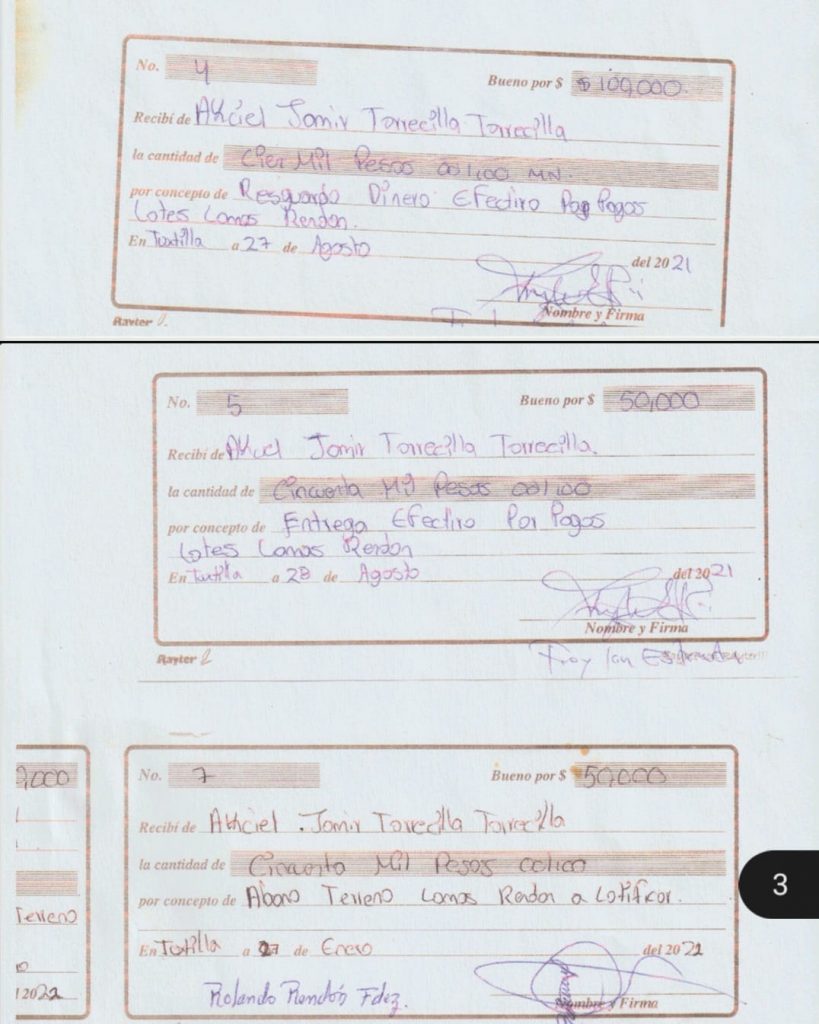 No. 4 Bueno por $ $100,000
Recibí de Akciel Jomir Torrecilla Torrecilla
la cantidad de Cien Mil Pesos 00/100 MN.
por concepto de Resguardo Dinero Efectivo Por Pagos
Lotes Lomas Rendon.
En Tuxtilla a 27 de Agosto
del 2021
Nombre y Firma
Rayter
No. 5 Bueno por $ 50,000
Recibí de Jomir Torrecilla Torrecilla.
la cantidad de Cincuenta Mil Pesos 00/100
por concepto de Entrega Efectivo Por Pagos
Lotes Lomas Rendon
En Tuxtilla a 28 de Agosto del 2021
Nombre y Firma
Rayter
Troy Ian
No. 7 Bueno por $ 50,000
Recibí de Akciel Jomir Torrecilla Torrecilla
la cantidad de Cincuenta Mil Pesos 00/100
por concepto de Abono Terreno Lomas Rendon a Lotificar.
En Tuxtilla a 27 de Enero del 2022
Rolando Rendón Fdez.
Nombre y Firma
,000
Terreno
2022
3